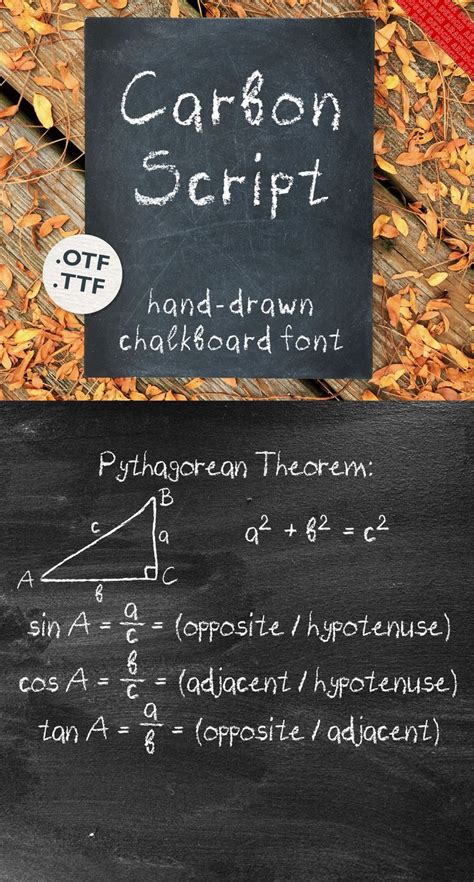 Carbon
Script
.OTF
.TTF
hand-drawn
chalkboard font
Pythagorean Theorem:
B
c
a
a² + b² = c²
A
C
b
sin A = a/c = (opposite / hypotenuse)
cos A = b/c = (adjacent / hypotenuse)
tan A = a/b = (opposite / adjacent)